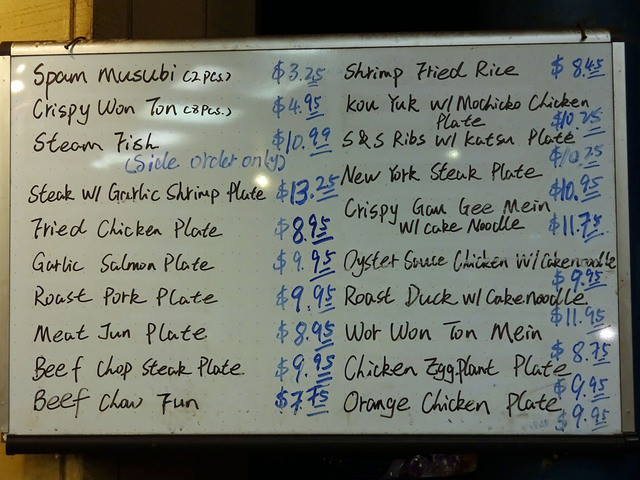 Spam Musubi (2pcs.) $3.25
Crispy Won Ton (8pcs.) $4.95
Steam Fish $10.99
(Side order only)
Steak w/ Garlic Shrimp Plate $13.25
Fried Chicken Plate $8.95
Garlic Salmon Plate $9.95
Roast Pork Plate $9.95
Meat Jun Plate $8.95
Beef Chop Steak Plate $9.95
Beef Chow Fun $7.75
Shrimp Fried Rice $8.45
Kou Yuk w/ Mochicko Chicken
Plate $10.25
S&S Ribs w/ Katsu Plate
$10.25
New York Steak Plate
$10.95
Crispy Gau Gee Mein
w/ cake Noodle $11.75
Oyster Sauce Chicken w/ Cakenoodle
$9.95
Roast Duck w/ Cakenoodle
$11.95
Wor Won Ton Mein
$8.75
Chicken Eggplant Plate
$9.95
Orange Chicken Plate
$9.95